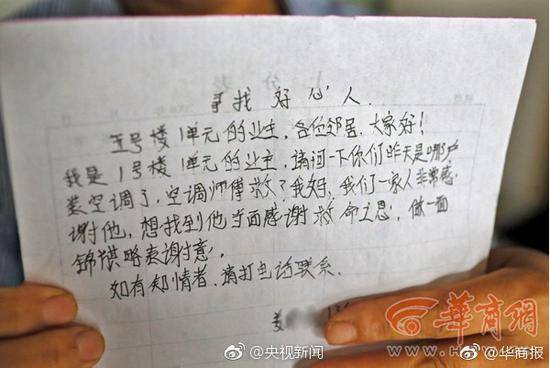 寻找 好心人.
五号楼1单元的业主,各位邻居,大家好!
我是1号楼1单元的业主,请问一下你们昨天是哪户
装空调了,空调师傅救了我妈,我们一家人非常感
谢他,想找到他当面感谢救命之恩,做一面
锦旗略表谢意,
如有知情者,请打电话联系.
华商网
@央视新闻
@华商报